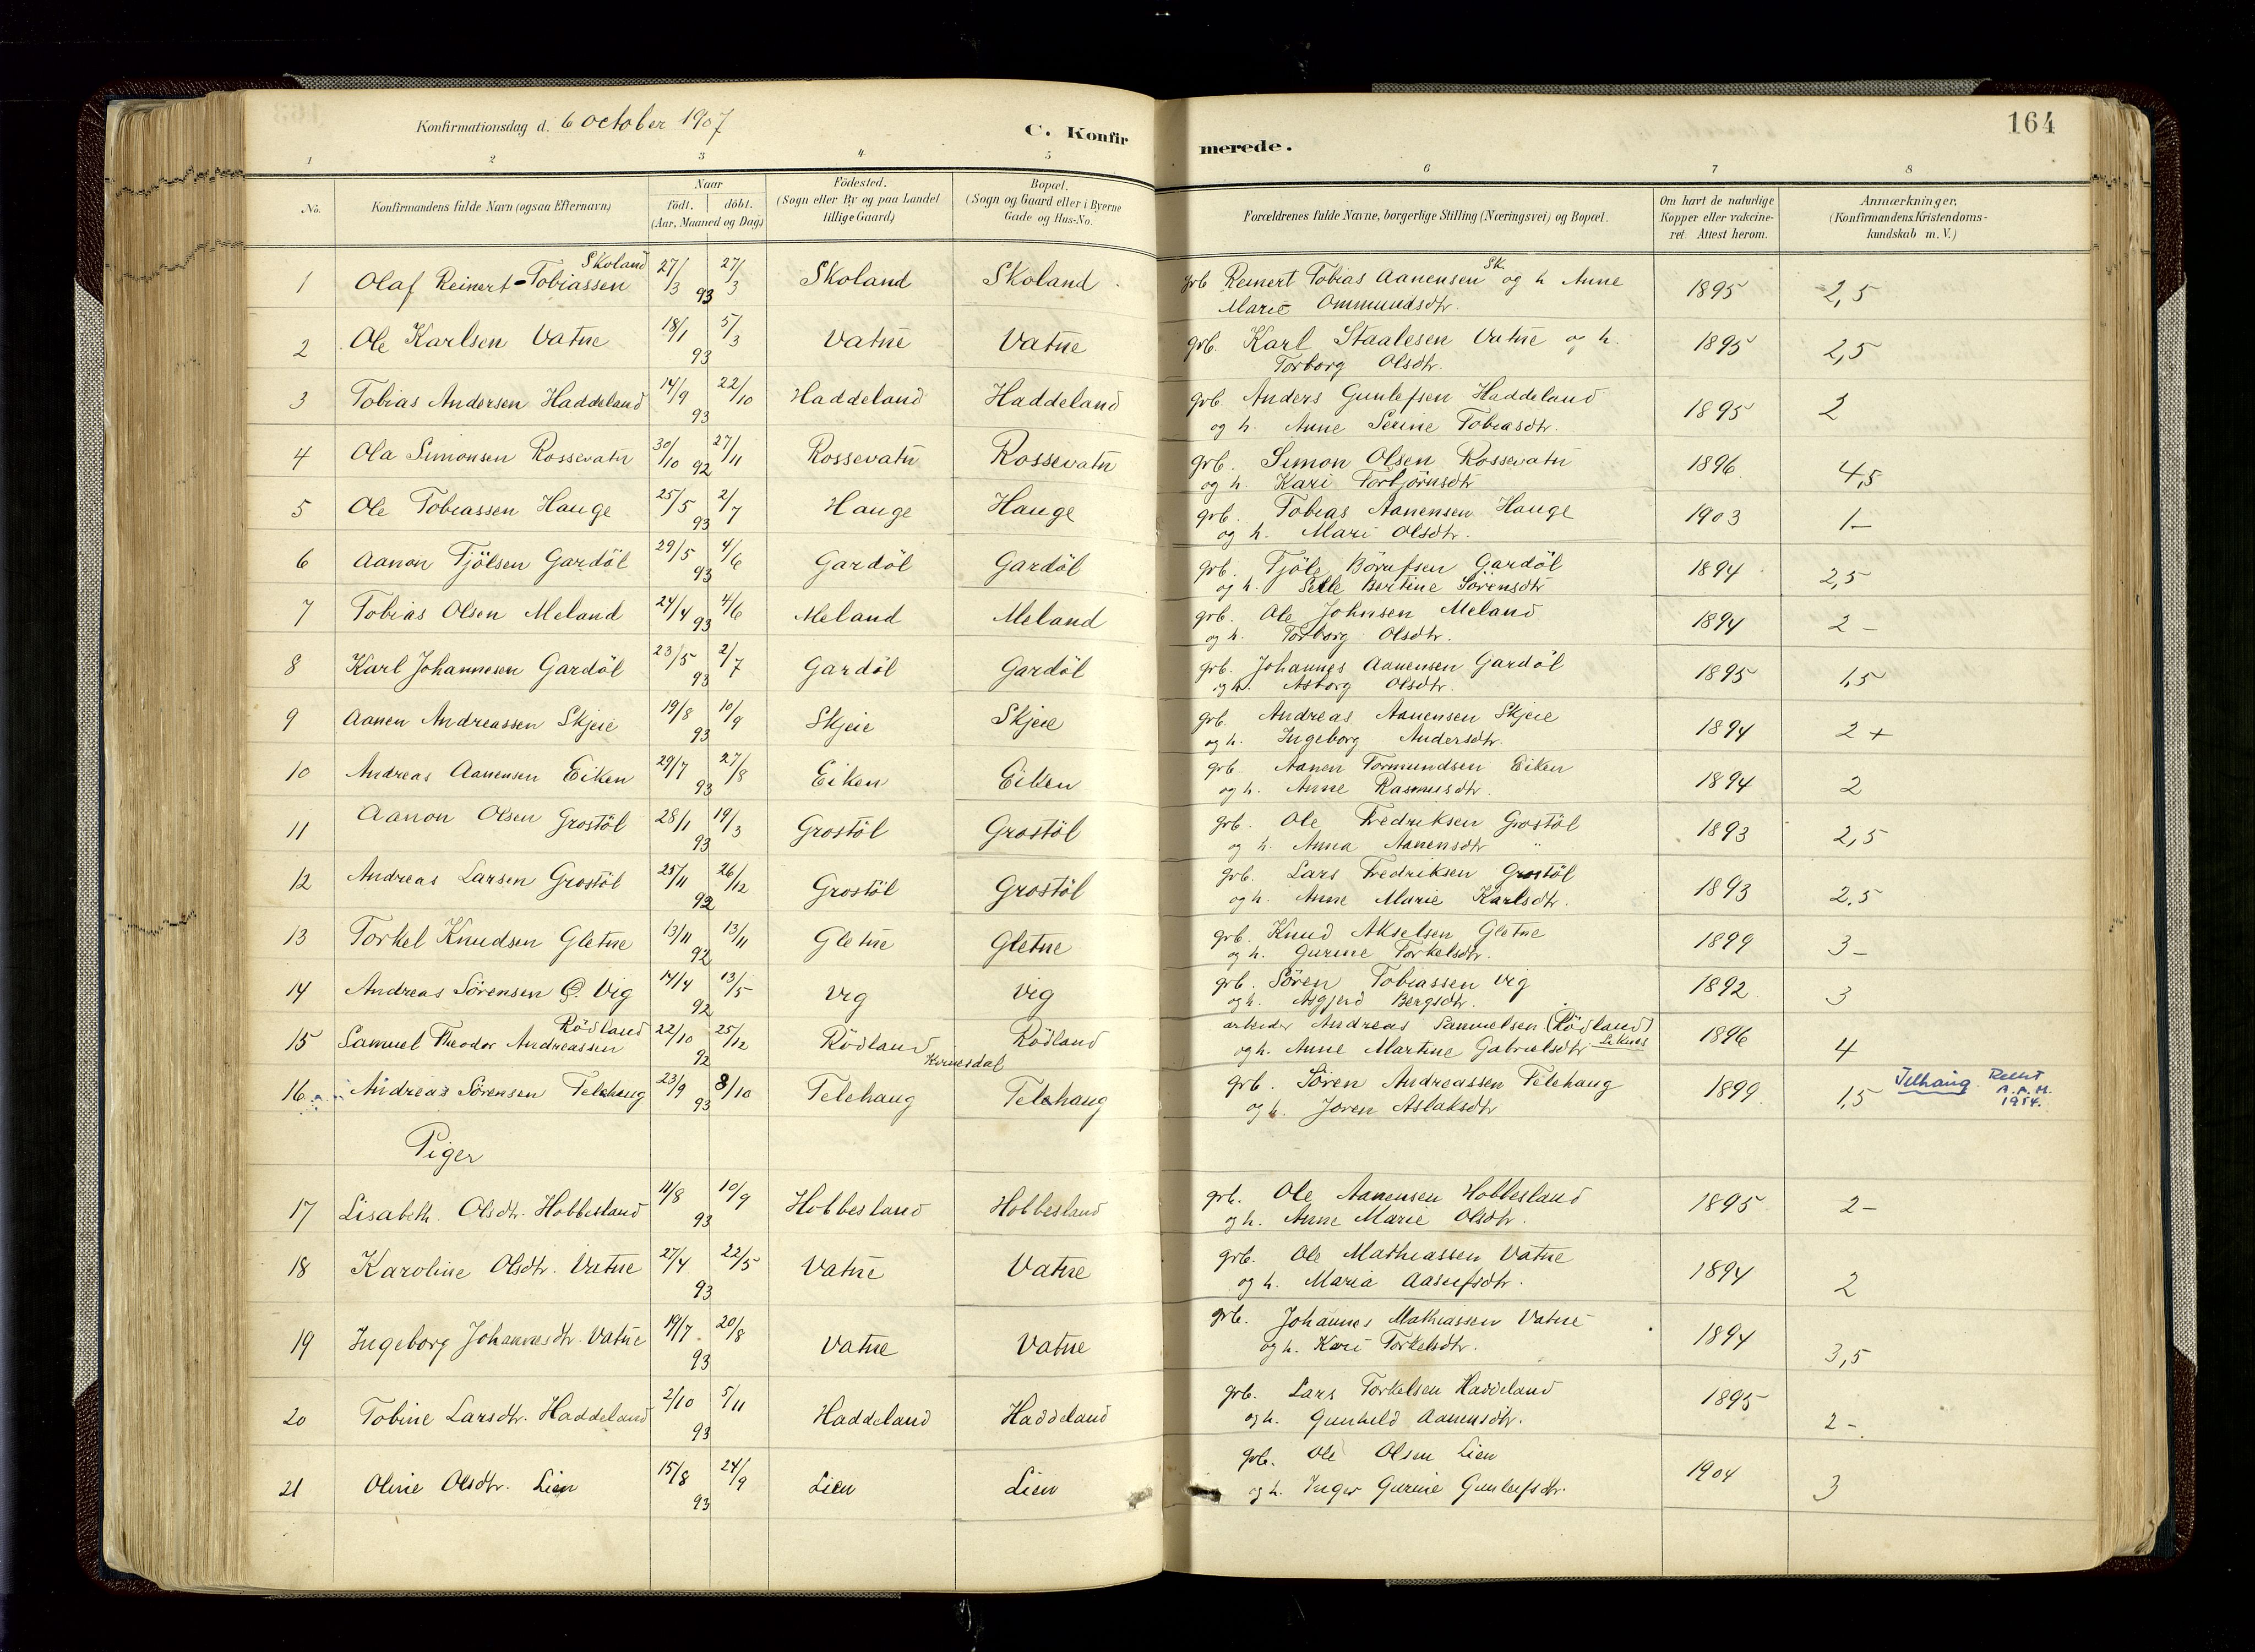 164
Konfirmationsdag d. 6 october 1907
C. Konfirmerede.
1 2 3 4 5 6 7 8
No. Konfirmandens fulde Navn (ogsaa Efternavn) Naar født. døbt. (Aar, Maaned og Dag) Fødested. (Sogn eller By og paa Landet tillige Gaard) Bopæl. (Sogn og Gaard eller i Byerne Gade og Hus-No. Forældrenes fulde Navne, borgerlige Stilling (Næringsvei) og Bopæl. Om havt de naturlige Kopper eller vakcineret. Attest herom. Anmærkninger. (Konfirmandens Kristendomskundskab m. V.)
1 Olaf Reinert Tobiassen Skoland 27/3 93 27/3 Skoland Skoland grb Reinert Tobias Aanensen Sk. og h Anne Marie Ommundsdtr 1895 2,5
2 Ole Karlsen Vatne 18/1 93 5/3 Vatne Vatne grb. Karl Staalesen Vatne og h. Torborg Olsdtr. 1895 2,5
3 Tobias Andersen Haddeland 14/9 93 22/10 Haddeland Haddeland grb. Anders Gunlefsen Haddeland og h. Anne Serine Tobiasdtr. 1895 2
4 Ola Simonsen Rossevatn 30/10 92 27/11 Rossevatn Rossevatn grb. Simon Olsen Rossevatn og h. Kari Torbjörnsdtr 1896 4,5
5 Ole Tobiassen Hauge 25/5 93 2/7 Hauge Hauge grb. Tobias Aanensen Hauge og h. Mari Olsdtr. 1903 1-
6 Aanon Fjölsen Gardöl 29/5 93 4/6 Gardöl Gardöl grb. Fjöle Börufsen Gardöl og h. Selle Bertine Sörensdtr 1894 2,5
7 Tobias Olsen Meland 24/4 93 4/6 Meland Meland grb. Ole Johnsen Meland og h. Torborg Olsdtr. 1894 2-
8 Karl Johannesen Gardöl 23/5 93 2/7 Gardöl Gardöl grb. Johannes Aanensen Gardöl og h. Asborg Olsdtr. 1895 1,5
9 Aanen Andreassen Skjeie 19/8 93 10/9 Skjeie Skjeie grb. Andreas Aanensen Skjeie og h. Ingeborg Andersdtr. 1894 2+
10 Andreas Aanensen Eiken 29/7 93 27/8 Eiken Eiken grb. Aanen Tormundsen Eiken og h. Anne Rasmusdtr. 1894 2
11 Aanon Olsen Grostöl 28/1 93 19/3 Grostöl Grostöl grb. Ole Fredriksen Grostöl og h. Anna Aanensdtr " 1893 2,5
12 Andreas Larsen Grostöl 25/11 92 26/12 Grostöl Grostöl grb. Lars Fredriksen Grostöl og h. Anne Marie Karlsdtr. 1893 2.5
13 Torkel Knudsen Gletne 13/11 92 13/11 Gletne Gletne grb. Knud Akselsen Gletne og h. Gurine Torkelsdtr. 1899 3-
14 Andreas Sörensen Vig 14/4 92 13/5 Vig Vig grb. Sören Tobiassen Vig og h. Asgjerd Bergsdtr. 1892 3
15 Samuel Theodor Andreassen Rödland 22/10 92 25/12 Rödland Kvinesdal Rödland arbeider Andreas Samuelsen (Rödland) og h. Anne Martine Gabrielsdtr 1896 4
16 Andreas Sörensen Telehaug 23/9 93 8/10 Telehaug Telehaug grb. Sören Andreassen Telehaug og h. Joren Aslaksdtr 1899 1,5 Telhaug. Rettet A.A.H. 1954.
Piger
17 Lisabeth Olsdtr. Hobbesland 11/8 93 10/9 Hobbesland Hobbesland grb. Ole Aanensen Hobbesland og h. Anne Marie Olsdtr. 1895 2-
18 Karoline Olsdtr. Vatne 27/4 93 22/5 Vatne Vatne grb. Ole Mathiassen Vatne og h. Maria Aasufsdtr. 1894 2
19 Ingeborg Johannesdtr. Vatne 19/7 93 20/8 Vatne Vatne grb. Johannes Mathiassen Vatne og h. Kari Torkelsdtr. 1894 3,5
20 Tobine Larsdtr. Haddeland 2/10 93 5/11 Haddeland Haddeland grb. Lars Torkelsen Haddeland og h. Gunhild Aanensdtr. 1895 2-
21 Oline Olsdtr. Lien 15/8 93 24/9 Lien Lien grb. Ole Olsen Lien og h. Inger Gurine Gunleifsdtr. 1904 3